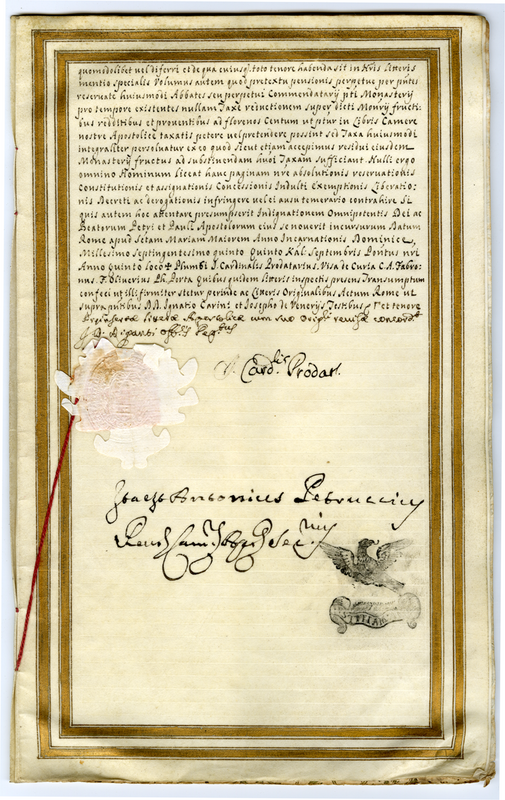 quomodolibet vel differri et de qua eiusq. toto tenore habenda sit in nris litteris
mentio specialis Volumus autem quod pretextu pensionis perpetue per pntes
reservate huiusmodi Abbates seu perpetui Commendatarij pti Monasterij
pro tempore existentes nullam Taxe reductionem super dicti Monrij fructi
bus redditibus et proventibus ad florenos Centum ut ptur in Libris Camere
nostre Apostolice taxatis petere vel pretendere possint sed Taxa huiusmodi
integraliter persolvatur ex eo quod sicut etiam accepimus residui eiusdem
Monasterij fructus ad substinendam huoi Taxam sufficiant Nulli ergo
omnino Hominum liceat hanc paginam nre absolutionis reservationis
Constitutionis et assignationis Concessionis Indulti Exemptionis Liberatio
nis Decreti ac derogationis infringere vel ei ausu temerario contraire Si
quis autem hoc attentare presumpserit Indignationem Omnipotentis Dei ac
Beatorum Petri et Pauli Apostolorum eius se noverit incursurum Datum
Rome apud Sctam Mariam Maiorem Anno Incarnationis Dominice
Millesimo Septingentesimo quinto Quinto Kal Septembris Pontus nri
Anno Quinto Loco + Plumbi J. Cardinalis Prodatarius. Visa de Curia C. A. Fabro
nus. F. Oliverius Ph. Porta Quibus quidem litteris inspectis presens Transumptum
confeci ut illi firmiter stetur perinde ac litteris Originalibus Actum Rome ut
supra putibus DD. Ignatio Corini et Josepho de Venerijs Testibus
Card.lis Prodat.
Antonius Petruccius